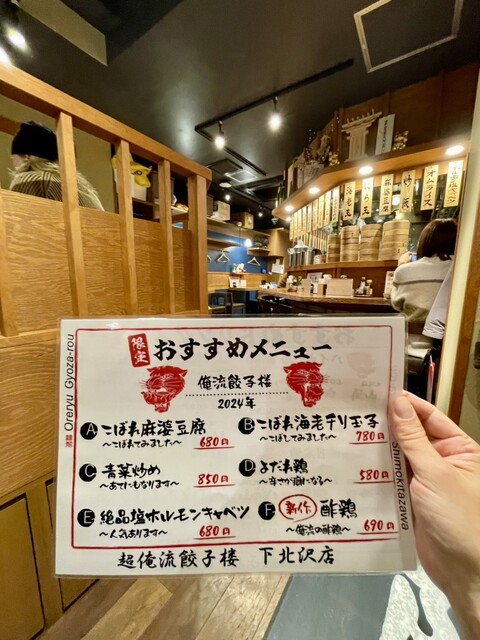 麻婆豆腐
オムライス
限定
おすすめメニュー
俺流餃子楼
2024年
Oreryu Gyoza-rou
Shimokitazawa
A こぼれ麻婆豆腐
～こぼれてみました～ 680円
B こぼれ海老チリ玉子
～こぼしてみました～ 780円
C 青菜炒め
～あてにもなります～ 850円
D よだれ鶏
～辛さが癖になる～ 580円
E 絶品塩ホルモンキャベツ
～人気あります～ 680円
F 新作 酢鶏
～俺流の酢鶏～ 690円
超俺流餃子楼 下北沢店